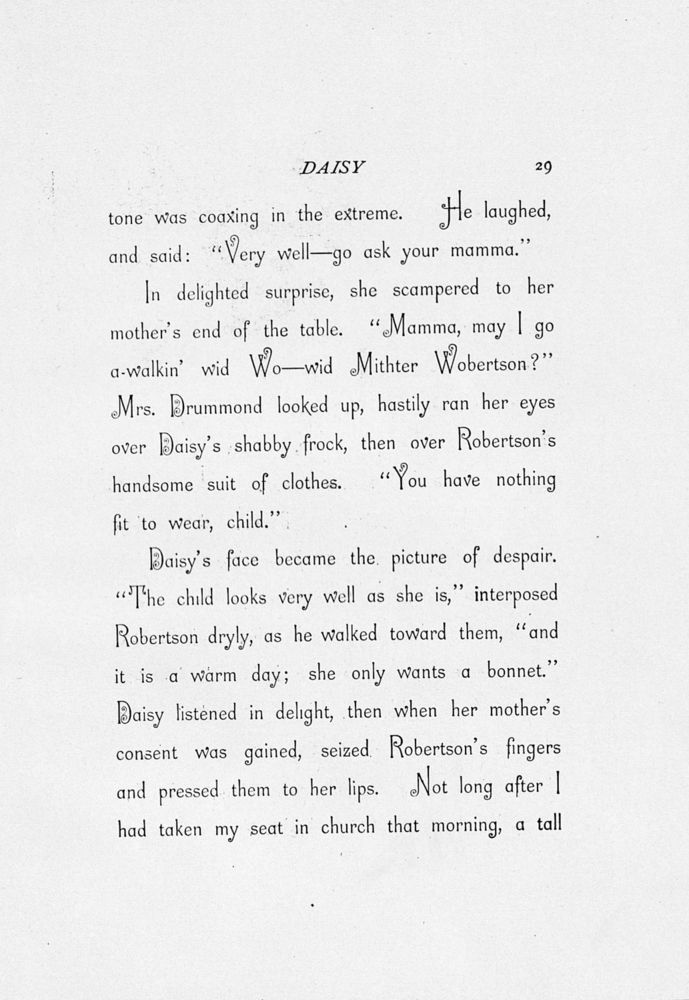 DAISY 29
tone was coaxing in the extreme. He laughed,
and said: “Very well—go ask your mamma.”
In delighted surprise, she scampered to her
mother’s end of the table. “Mamma, may I go
a-walkin’ wid Wo—wid Mithter Wobertson?”
Mrs. Drummond looked up, hastily ran her eyes
over Daisy’s shabby frock, then over Robertson’s
handsome suit of clothes. “You have nothing
fit to wear, child.”
Daisy’s face became the picture of despair.
“The child looks very well as she is,” interposed
Robertson dryly, as he walked toward them, “and
it is a warm day; she only wants a bonnet.”
Daisy listened in delight, then when her mother’s
consent was gained, seized Robertson’s fingers
and pressed them to her lips. Not long after I
had taken my seat in church that morning, a tall